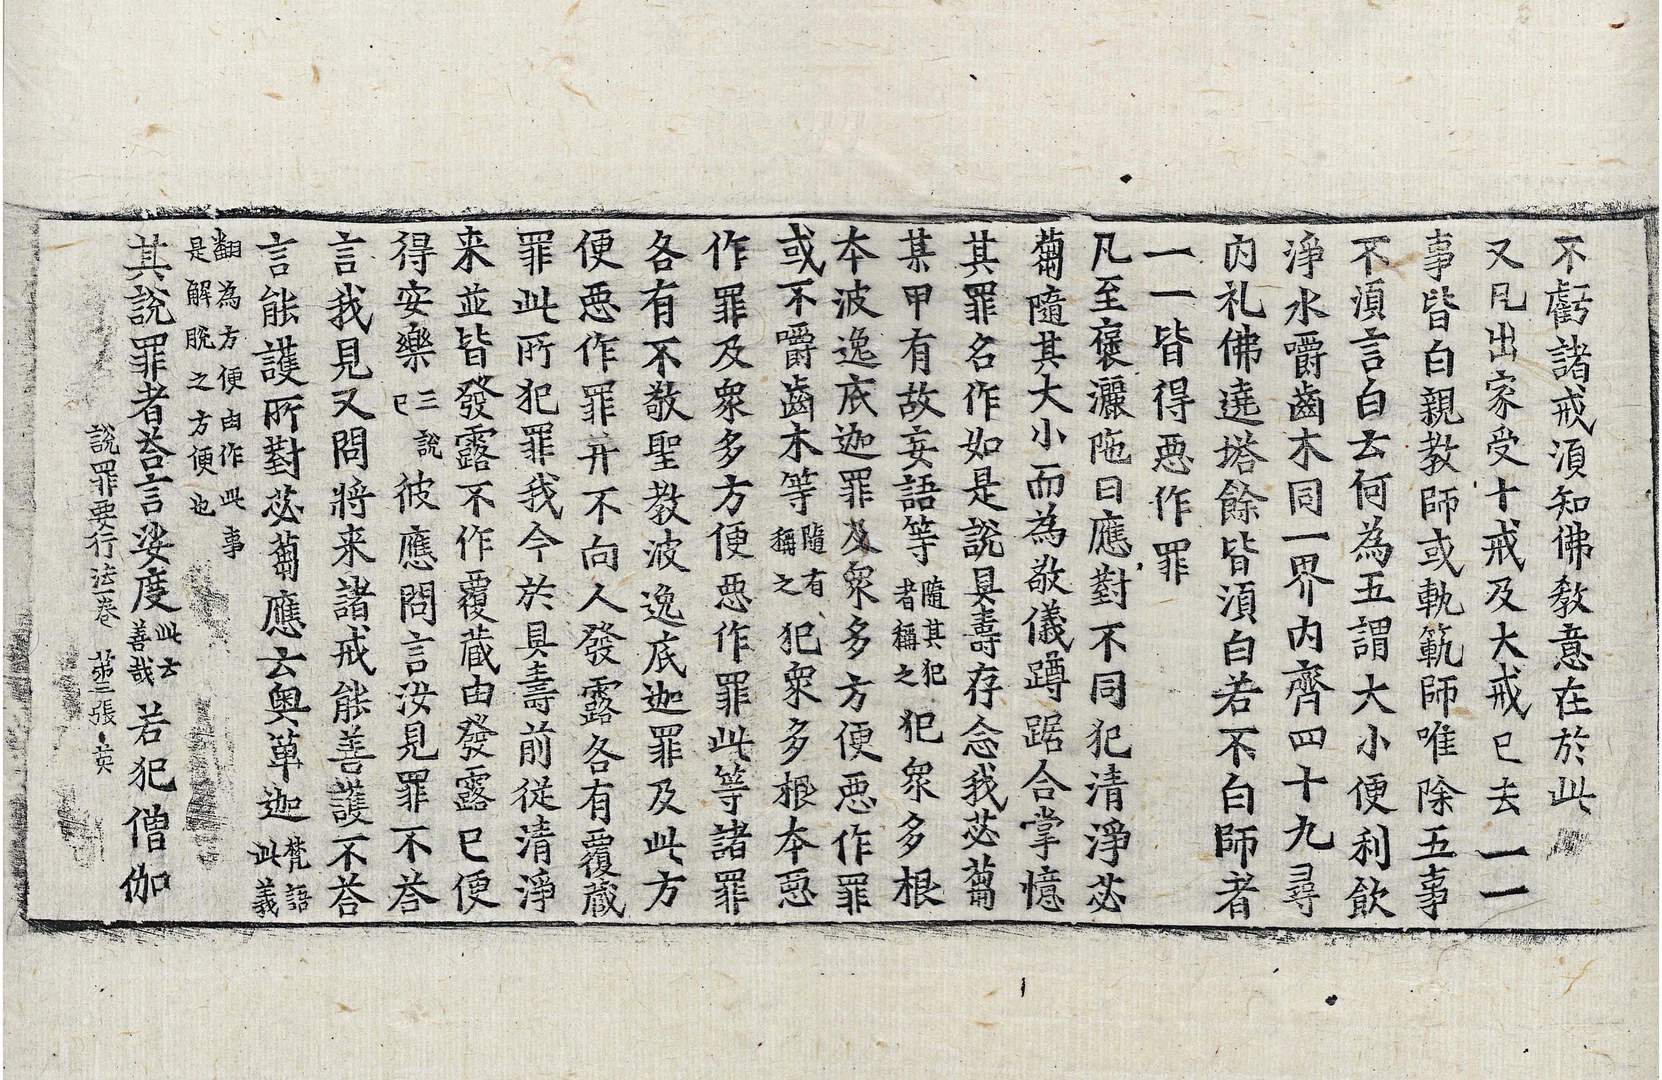 不虧諸戒湏知佛教意在於此
又凡出家受十戒及大戒已去一一
事皆白親教師或軌範師唯除五事
不湏言白云何為五謂大小便利飲
淨水嚼齒木同一界內齊四十九尋
內礼佛遶塔餘皆湏白若不白師者
一一皆得惡作罪
凡至襃灑陁日應對不同犯清淨苾
蒭隨其大小而為敬儀蹲踞合掌憶
其罪名作如是說具壽存念我苾蒭
某甲有故妄語等隨其犯者稱之犯衆多根
本波逸底迦罪及衆多方便惡作罪
或不嚼齒木等隨有稱之犯衆多根本惡
作罪及衆多方便惡作罪此等諸罪
各有不敬聖教波逸底迦罪及此方
便惡作罪并不向人發露各有覆藏
罪此所犯罪我今於具壽前從清淨
来並皆發露不作覆藏由發露已便
得安樂三說已彼應問言汝見罪不荅
言我見又問將来諸戒能善護不荅
言能護所對苾蒭應云奧箄迦梵語此義
翻為方便由作此事是解脫之方便也
其說罪者荅言娑度此云善哉若犯僧伽
說罪要行法一卷 第三張 英